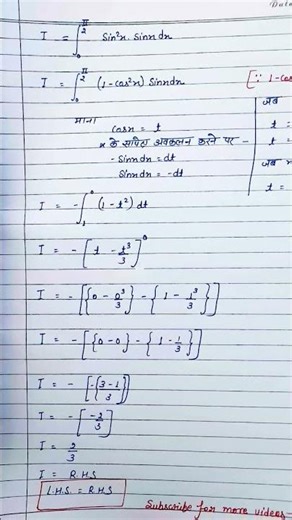 Date
I = ∫₀^(π/2) Sin²x. Sinx dx
I = ∫₀^(π/2) (1-cos²x) Sinx dx [∵ 1-cos
माना
जब
cosx = t
t =
x के सापेक्ष अवकलन करने पर -
t =
- Sinx dx = dt
जब
Sinx dx = -dt
t =
I = - ∫₁⁰ (1-t²) dt
I = - [t - t³/3]⁰
I = - [{0 - 0³/3} - {1 - 1³/3}]
I = - [{0-0} - {1 - 1/3}]
I = - [-{3-1/3}]
I = - [-2/3]
I = 2/3
I = R.H.S
L.H.S. = R.H.S
Subscribe for more videos